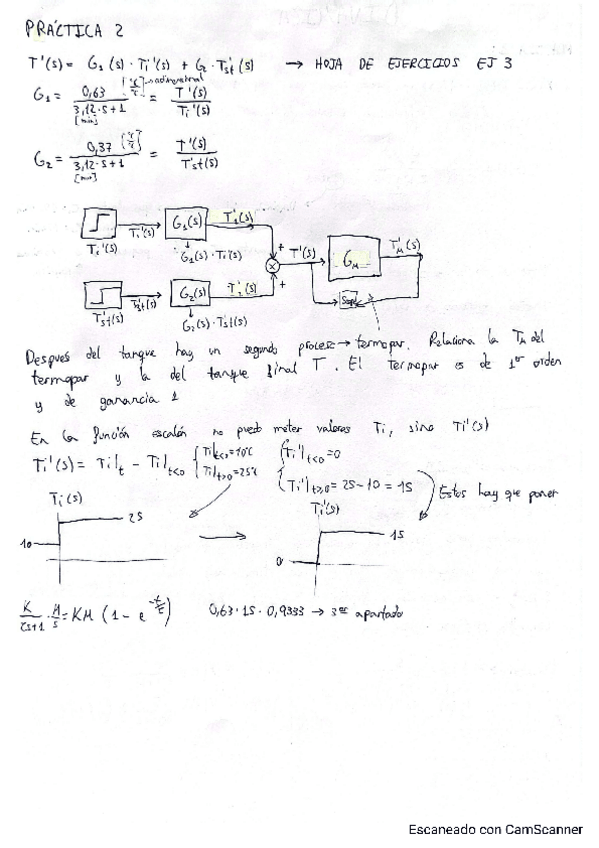 PRÁCTICA 2
T'(s) = G₁(s) · Ti'(s) + G₂ · Tst'(s) → HOJA DE EJERCICIOS EJ 3
G₁ = 0,63 [ºC/ºC] → adimensional / 3,12·s+1 [min] = T'(s) / Ti'(s)
G₂ = 0,37 [ºC/ºC] / 3,12·s+1 [min] = T'(s) / T'st(s)
Ti'(s) Ti'(s) G₁(s) T'₁(s)
G₁(s) · Ti(s)
+ T'(s) GM T'M(s)
T'st(s) T'st(s) G₂(s) T'₂(s) +
G₂(s) · Tst(s)
Después del tanque hay un segundo proceso → termopar. Relaciona la TM del
termopar y la del tanque final T. El termopar es de 1er orden
y de ganancia 1
En la función escalón no puedo meter valores Ti, sino Ti'(s)
Ti'(s) = Ti|t - Ti|t<0 { Ti|t<0 = 10ºC { Ti'|t<0 = 0
Ti|t>0 = 25ºC Ti'|t≥0 = 25 - 10 = 15 Estos hay que poner
Ti(s) Ti'(s)
25 15
10 → 0
K/τs+1 · M/s = KM (1 - e^-t/τ) 0,63 · 15 · 0,9333 → 3er apartado
Escaneado con CamScanner